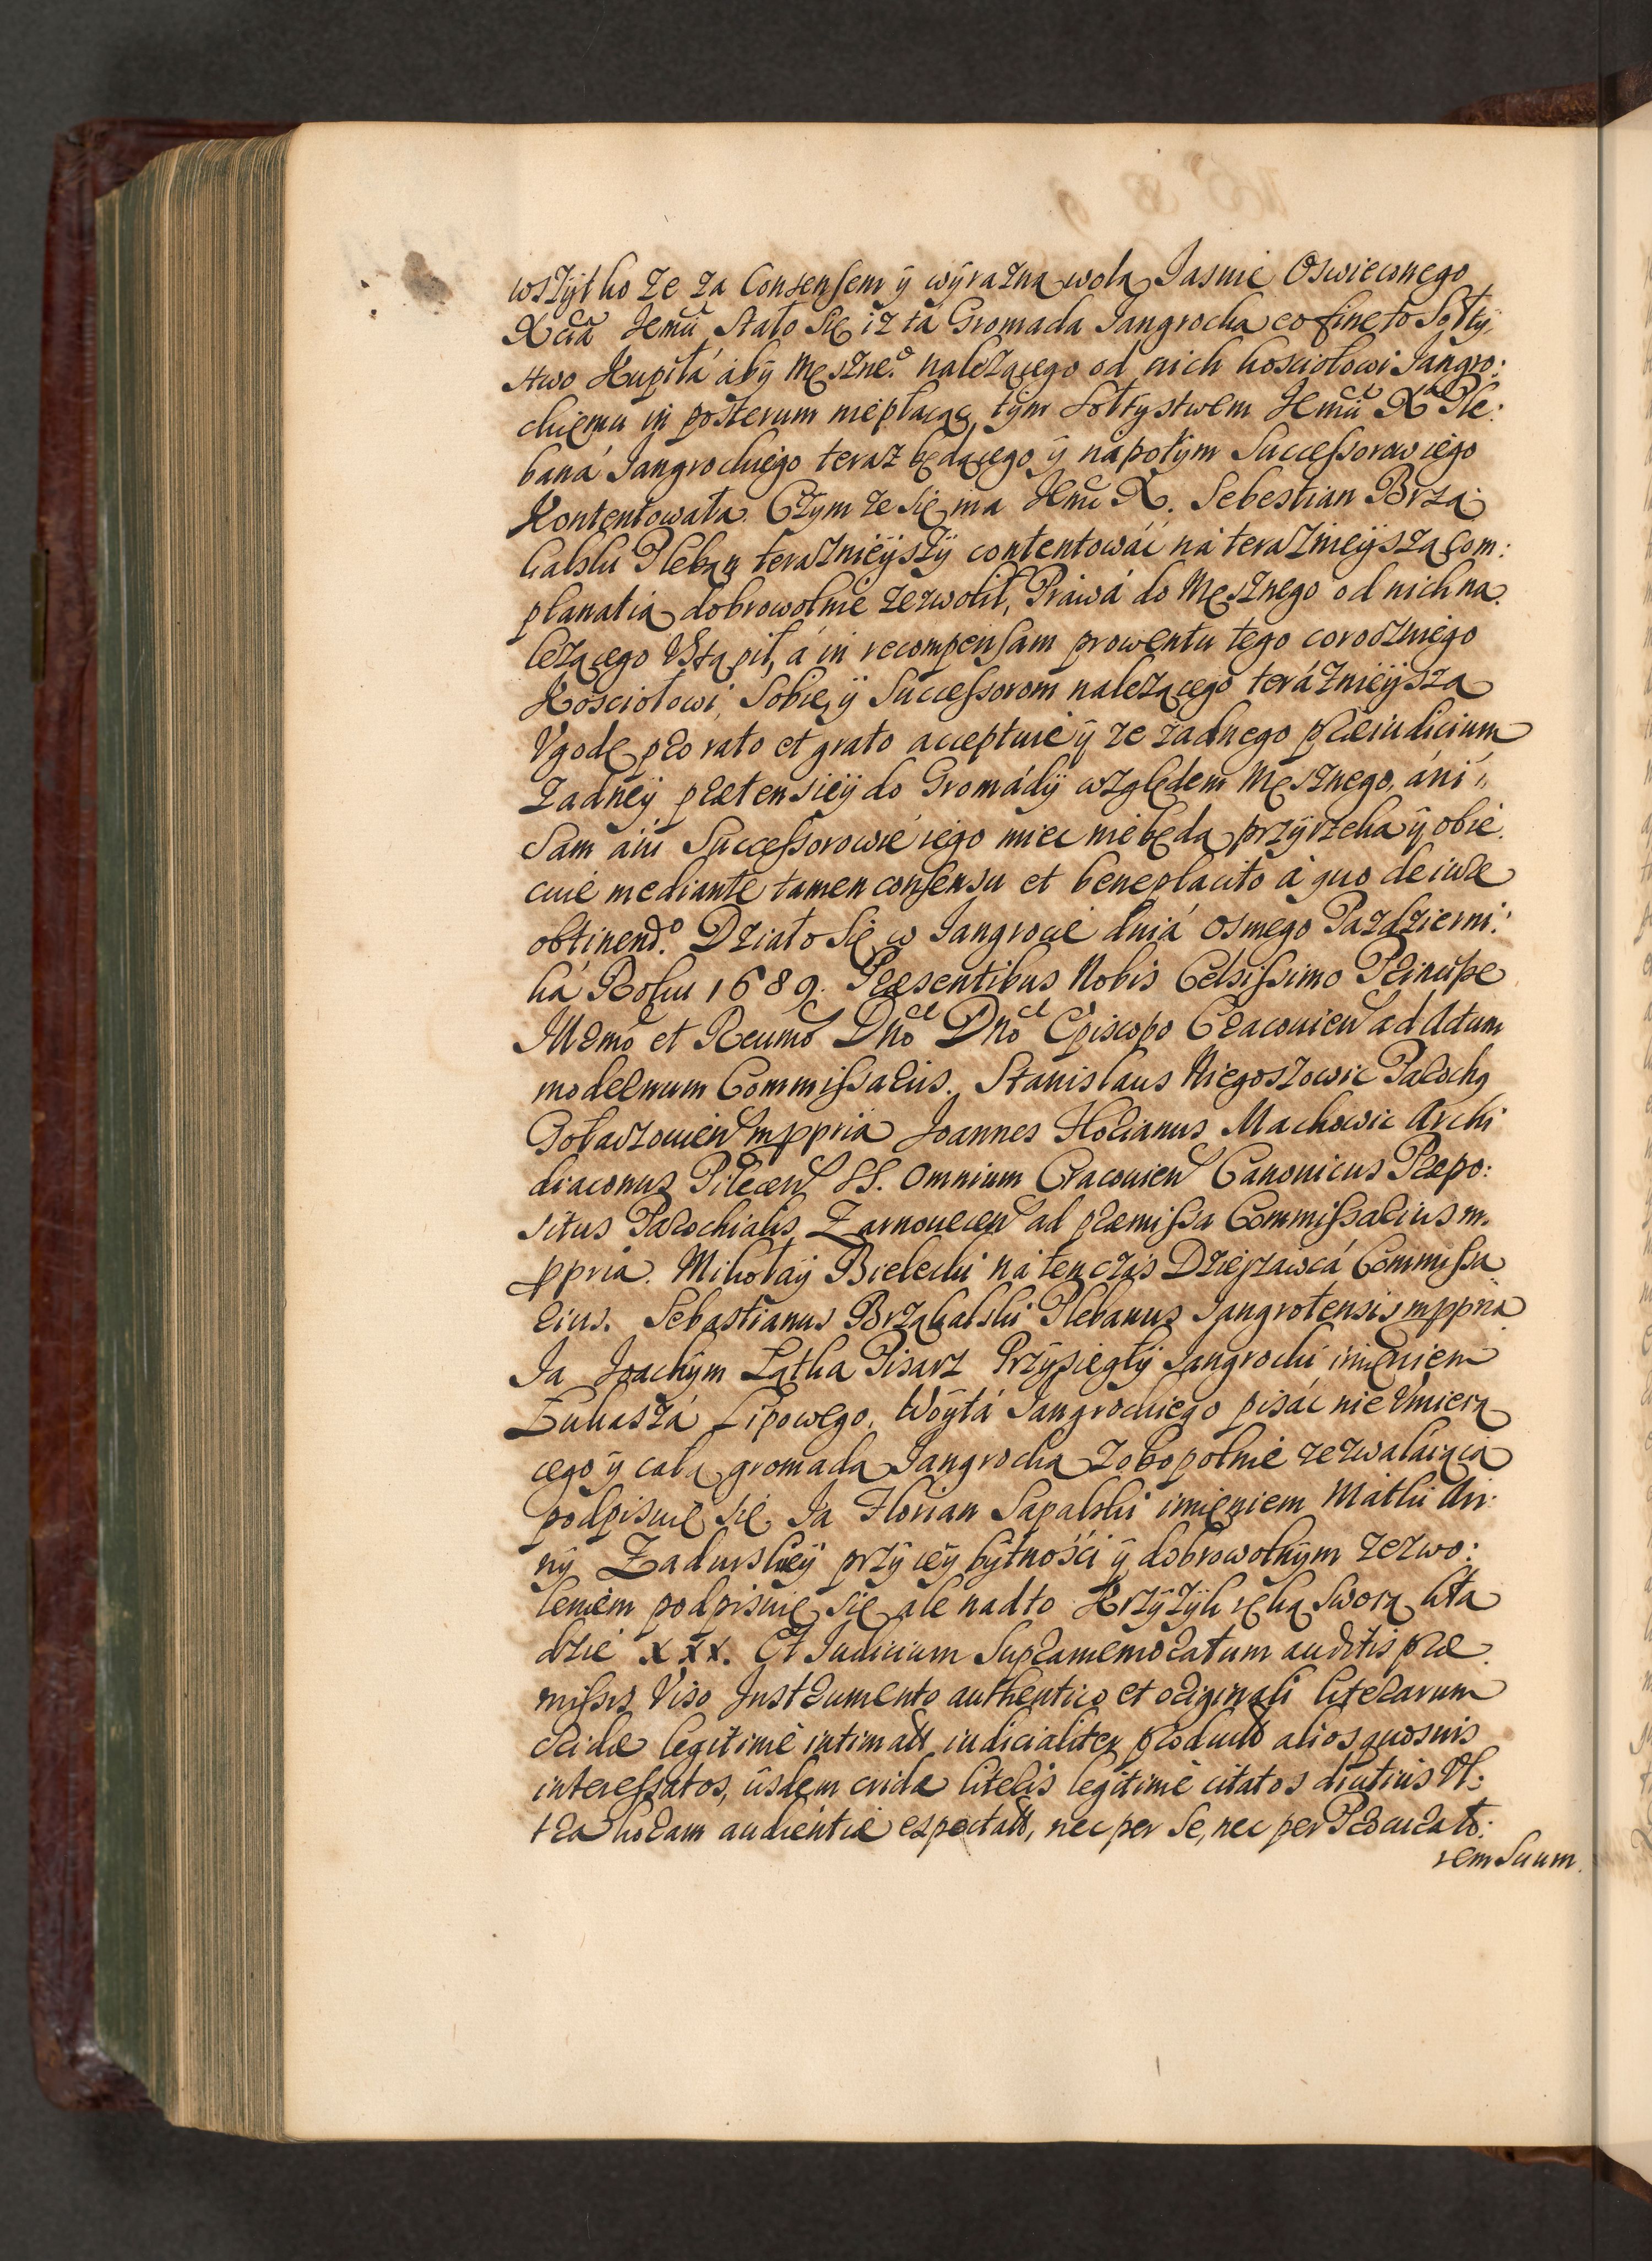 wszÿtko ze za Consensem ÿ wÿrazną wolą Jasnie Oswieconego
Xcia Jemci Stało Się iz ta Gromada Jangrocka eo fine to Sołtÿ,
stwo Kupiłá ábÿ Męszne.º nalezącego od nich kosciołowi Jangro:
ckiemu in posterum niepłacąc, tÿm Sołtystwem Jemci Xa Ple:
baná Jangrockiego teraz będącego ÿ nápotÿm Successorow iego
Kontentowała. Czym ze się ma Jemc X. Sebestian Brzą:
kalski Pleban teraznieÿszÿ contentowáć ná teraznieÿszą com:
planatią dobrowolnie zezwolił, Práwá do Męsznego od nich na:
lezącego Ustąpił, á in recompensam prowentu tego corocznego
Kosciołowi, Sobie, ÿ Successorom nalezącego teráznieÿszą
Vgodę pro rato et grato acceptuie ÿ ze zadnego præiudicium
zadneÿ prætensieÿ do Gromádÿ względem Męsznego, áni
Sam áni Successorowie iego miec niebędą przÿrzeka ÿ obie:
cuie mediante tamen consensu et beneplacito à quo de iure
obtinend.º Działo Się w Jangrocie dniá osmego Pazdzierni:
ká Roku 1689. Præsentibus Nobis Celsissimo Principe
Illrmo et Reumo Dno Dno Episcopo Cracouien ad Actum
modernum Commissariis. Stanislaus Niegoszowic Paroch9
Gołaczouien mppria Joannes Florianus Machowic Archi
diaconus Pilecen SS. Omnium Cracouien Canonicus Præpo:
situs Parochialis Zarnouecen ad præmissa Commissarius m.
ppria. Mikołaÿ Bielecki ná tenczás Dzierzawcá Commissa
rius. Sebastianus Brząkalski Plebanus Jangrotensis mppria
Ja Joachÿm Łątka Pisarz Przÿsiegłÿ Jangrocki imieniem
Łukaszá Lipowego, Wóytá Jangrockiego pisác nie Umieią
cego ÿ całą gromadą Jangrocką zobopolnie zezwaláiącą
podpisuię się. Ja Florian Sapalski imieniem Matki An:
nÿ Zadurskieÿ przÿ ieÿ bÿtności ÿ dobrowolnÿm zezwo:
leniem podpisuię się ale nadto Krzÿzÿk ręką Swoią kła
dzie x x x. Et Judicium Supramemoratum auditis præ
missis Viso Instrumento authentico et originali literarum
cridæ legitimè intimatt iudicialiter product aliosquosuis
interessatos, iisdem cridæ literis legitimè citatos diutius Vl:
tra horam audientiæ expectatt, nec per Se, nec per Procurato:
rem Suum